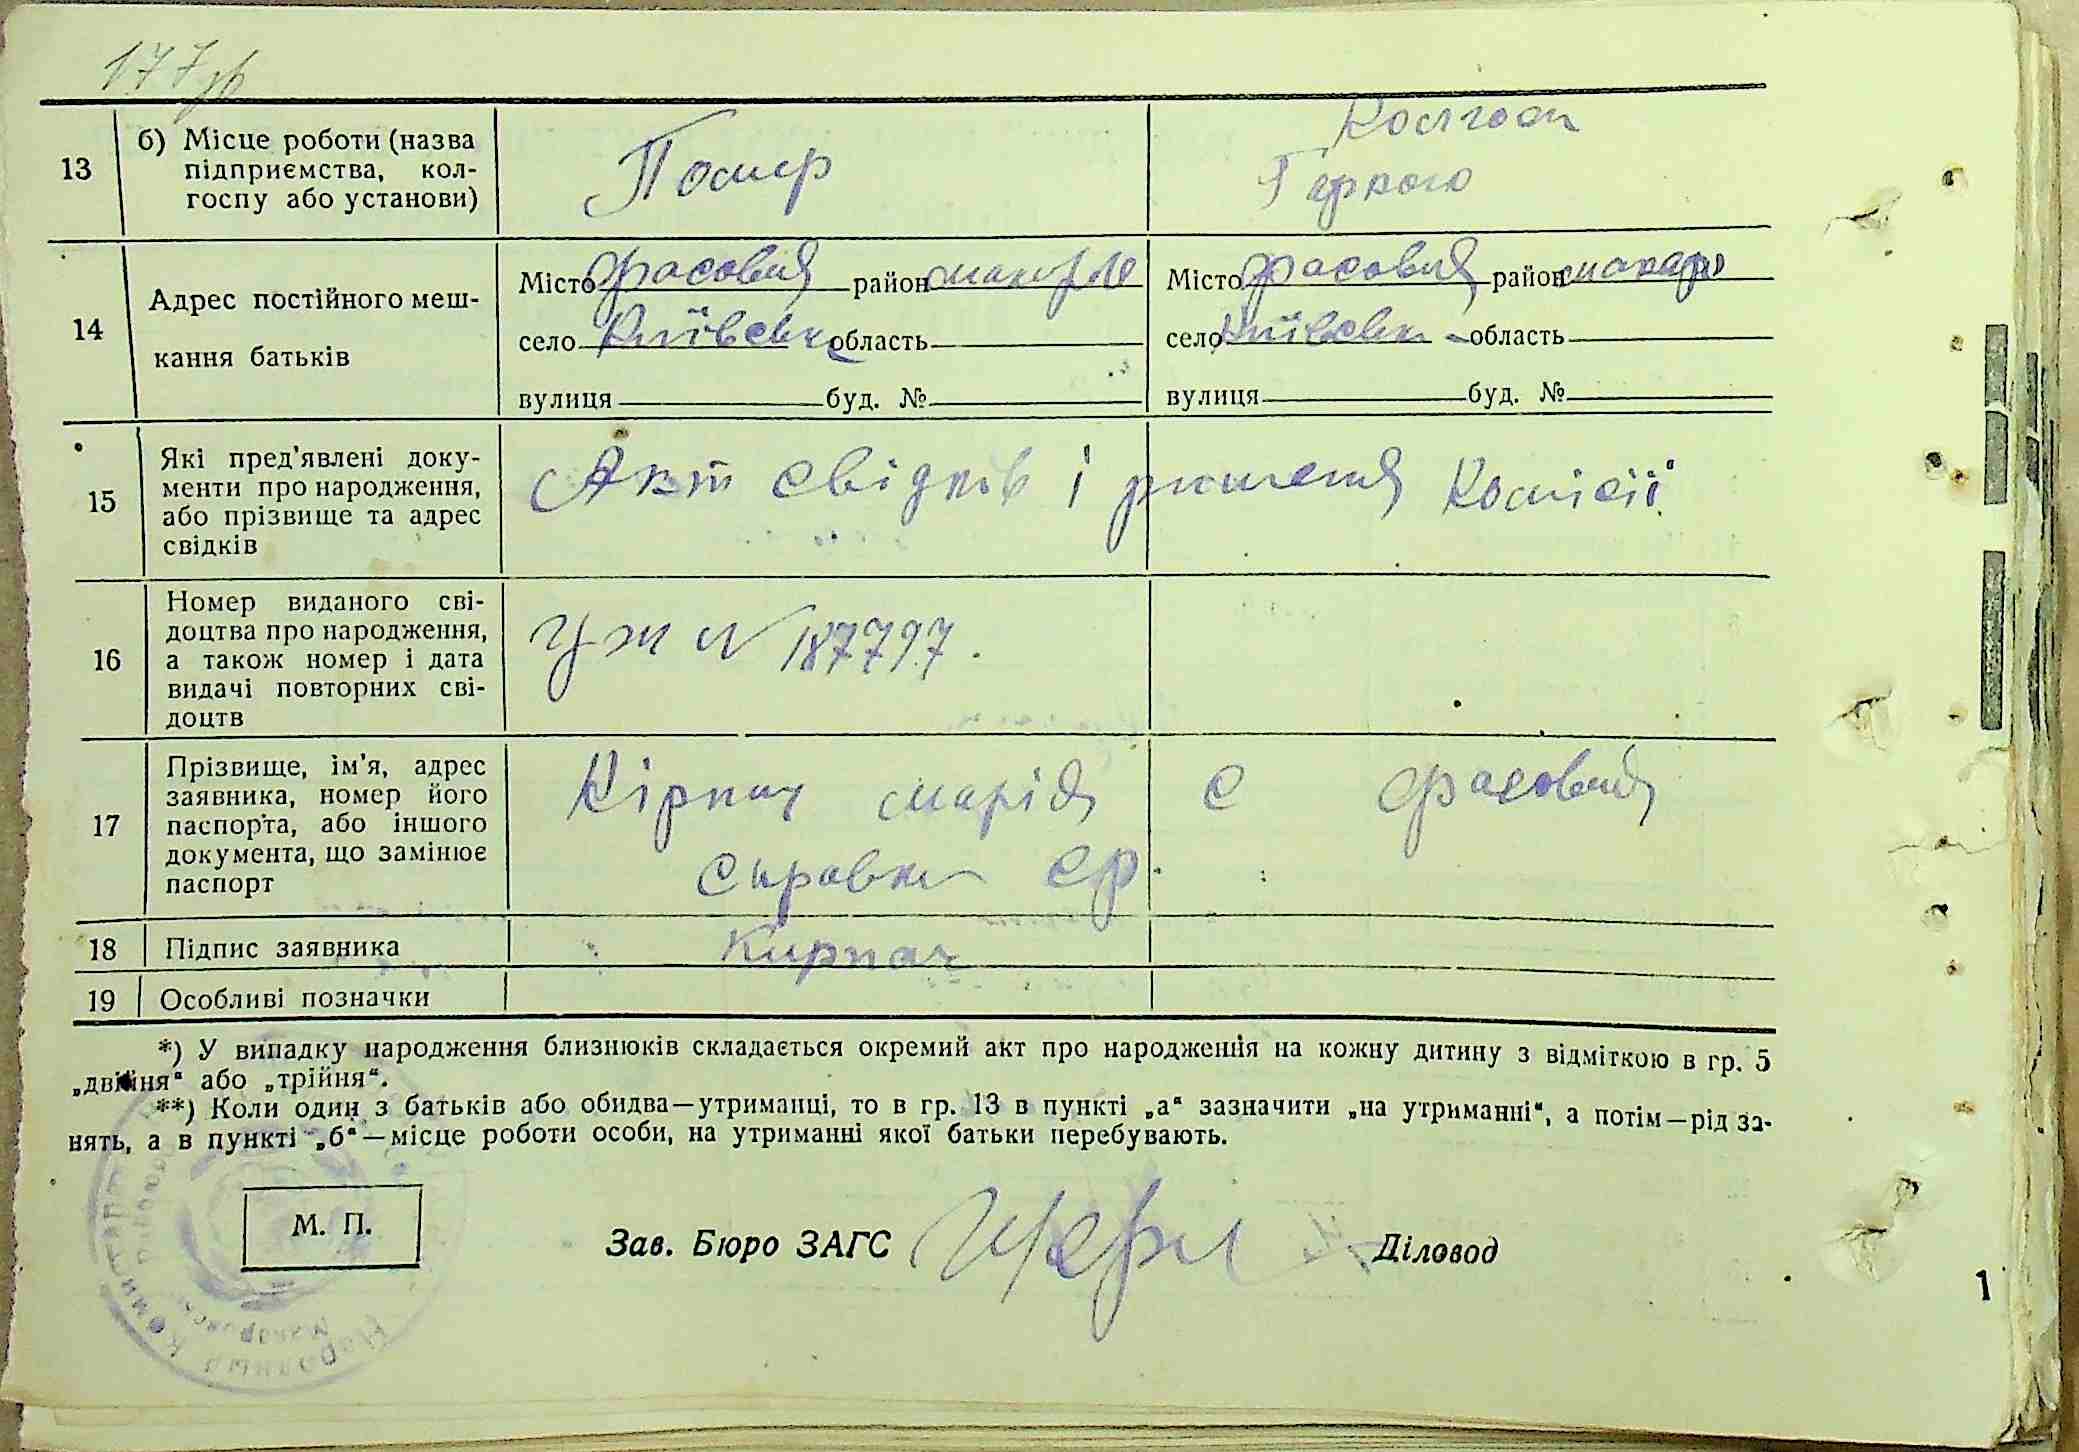 177зв
13
б) Місце роботи (назва
підприємства, кол-
госпу або установи)
Помер
Колгосп
Горкого
14
Адрес постійного меш-
кання батьків
Місто Фасовая район макарів
село Київськ область
вулиця буд. №
Місто Фасовая район макарів
село Київськ область
вулиця буд. №
15
Які пред'явлені доку-
менти про народження,
або прізвище та адрес
свідків
Акт свідків і рішення комісії
16
Номер виданого сві-
доцтва про народження,
а також номер і дата
видачі повторних сві-
доцтв
УЖ № 187797.
17
Прізвище, ім'я, адрес
заявника, номер його
паспорта, або іншого
документа, що замінює
паспорт
Кірпач марія с Фасовая
справка ср.
18
Підпис заявника
Кирпач
19
Особливі позначки
*) У випадку народження близнюків складається окремий акт про народження на кожну дитину з відміткою в гр. 5
„двійня" або „трійня".
**) Коли один з батьків або обидва—утриманці, то в гр. 13 в пункті „а" зазначити „на утриманні", а потім—рід за-
нять, а в пункті „б"—місце роботи особи, на утриманні якої батьки перебувають.
М. П.
Зав. Бюро ЗАГС
Діловод
1